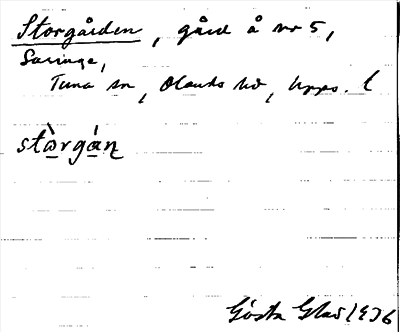 Storgården, gård å nr 5,
Saringe,
Tuna sn, Olands hd, Upps. l
stò̱rgá̱ṇ
Gösta Glas 1936